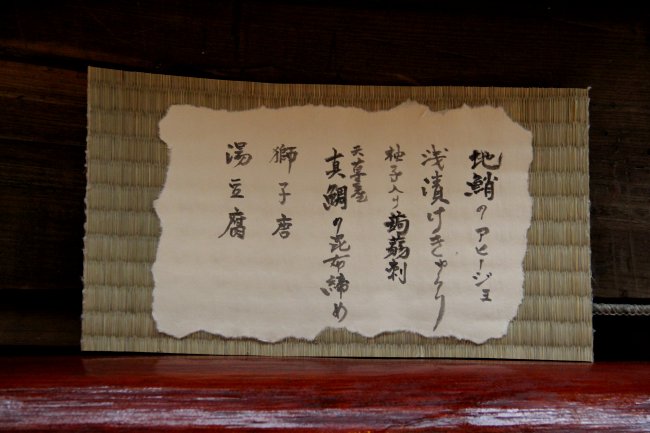 地鮹のアヒージョ
浅漬けきゅうり
柚子入り蒟蒻刺
天草産
真鯛の昆布締め
獅子唐
湯豆腐